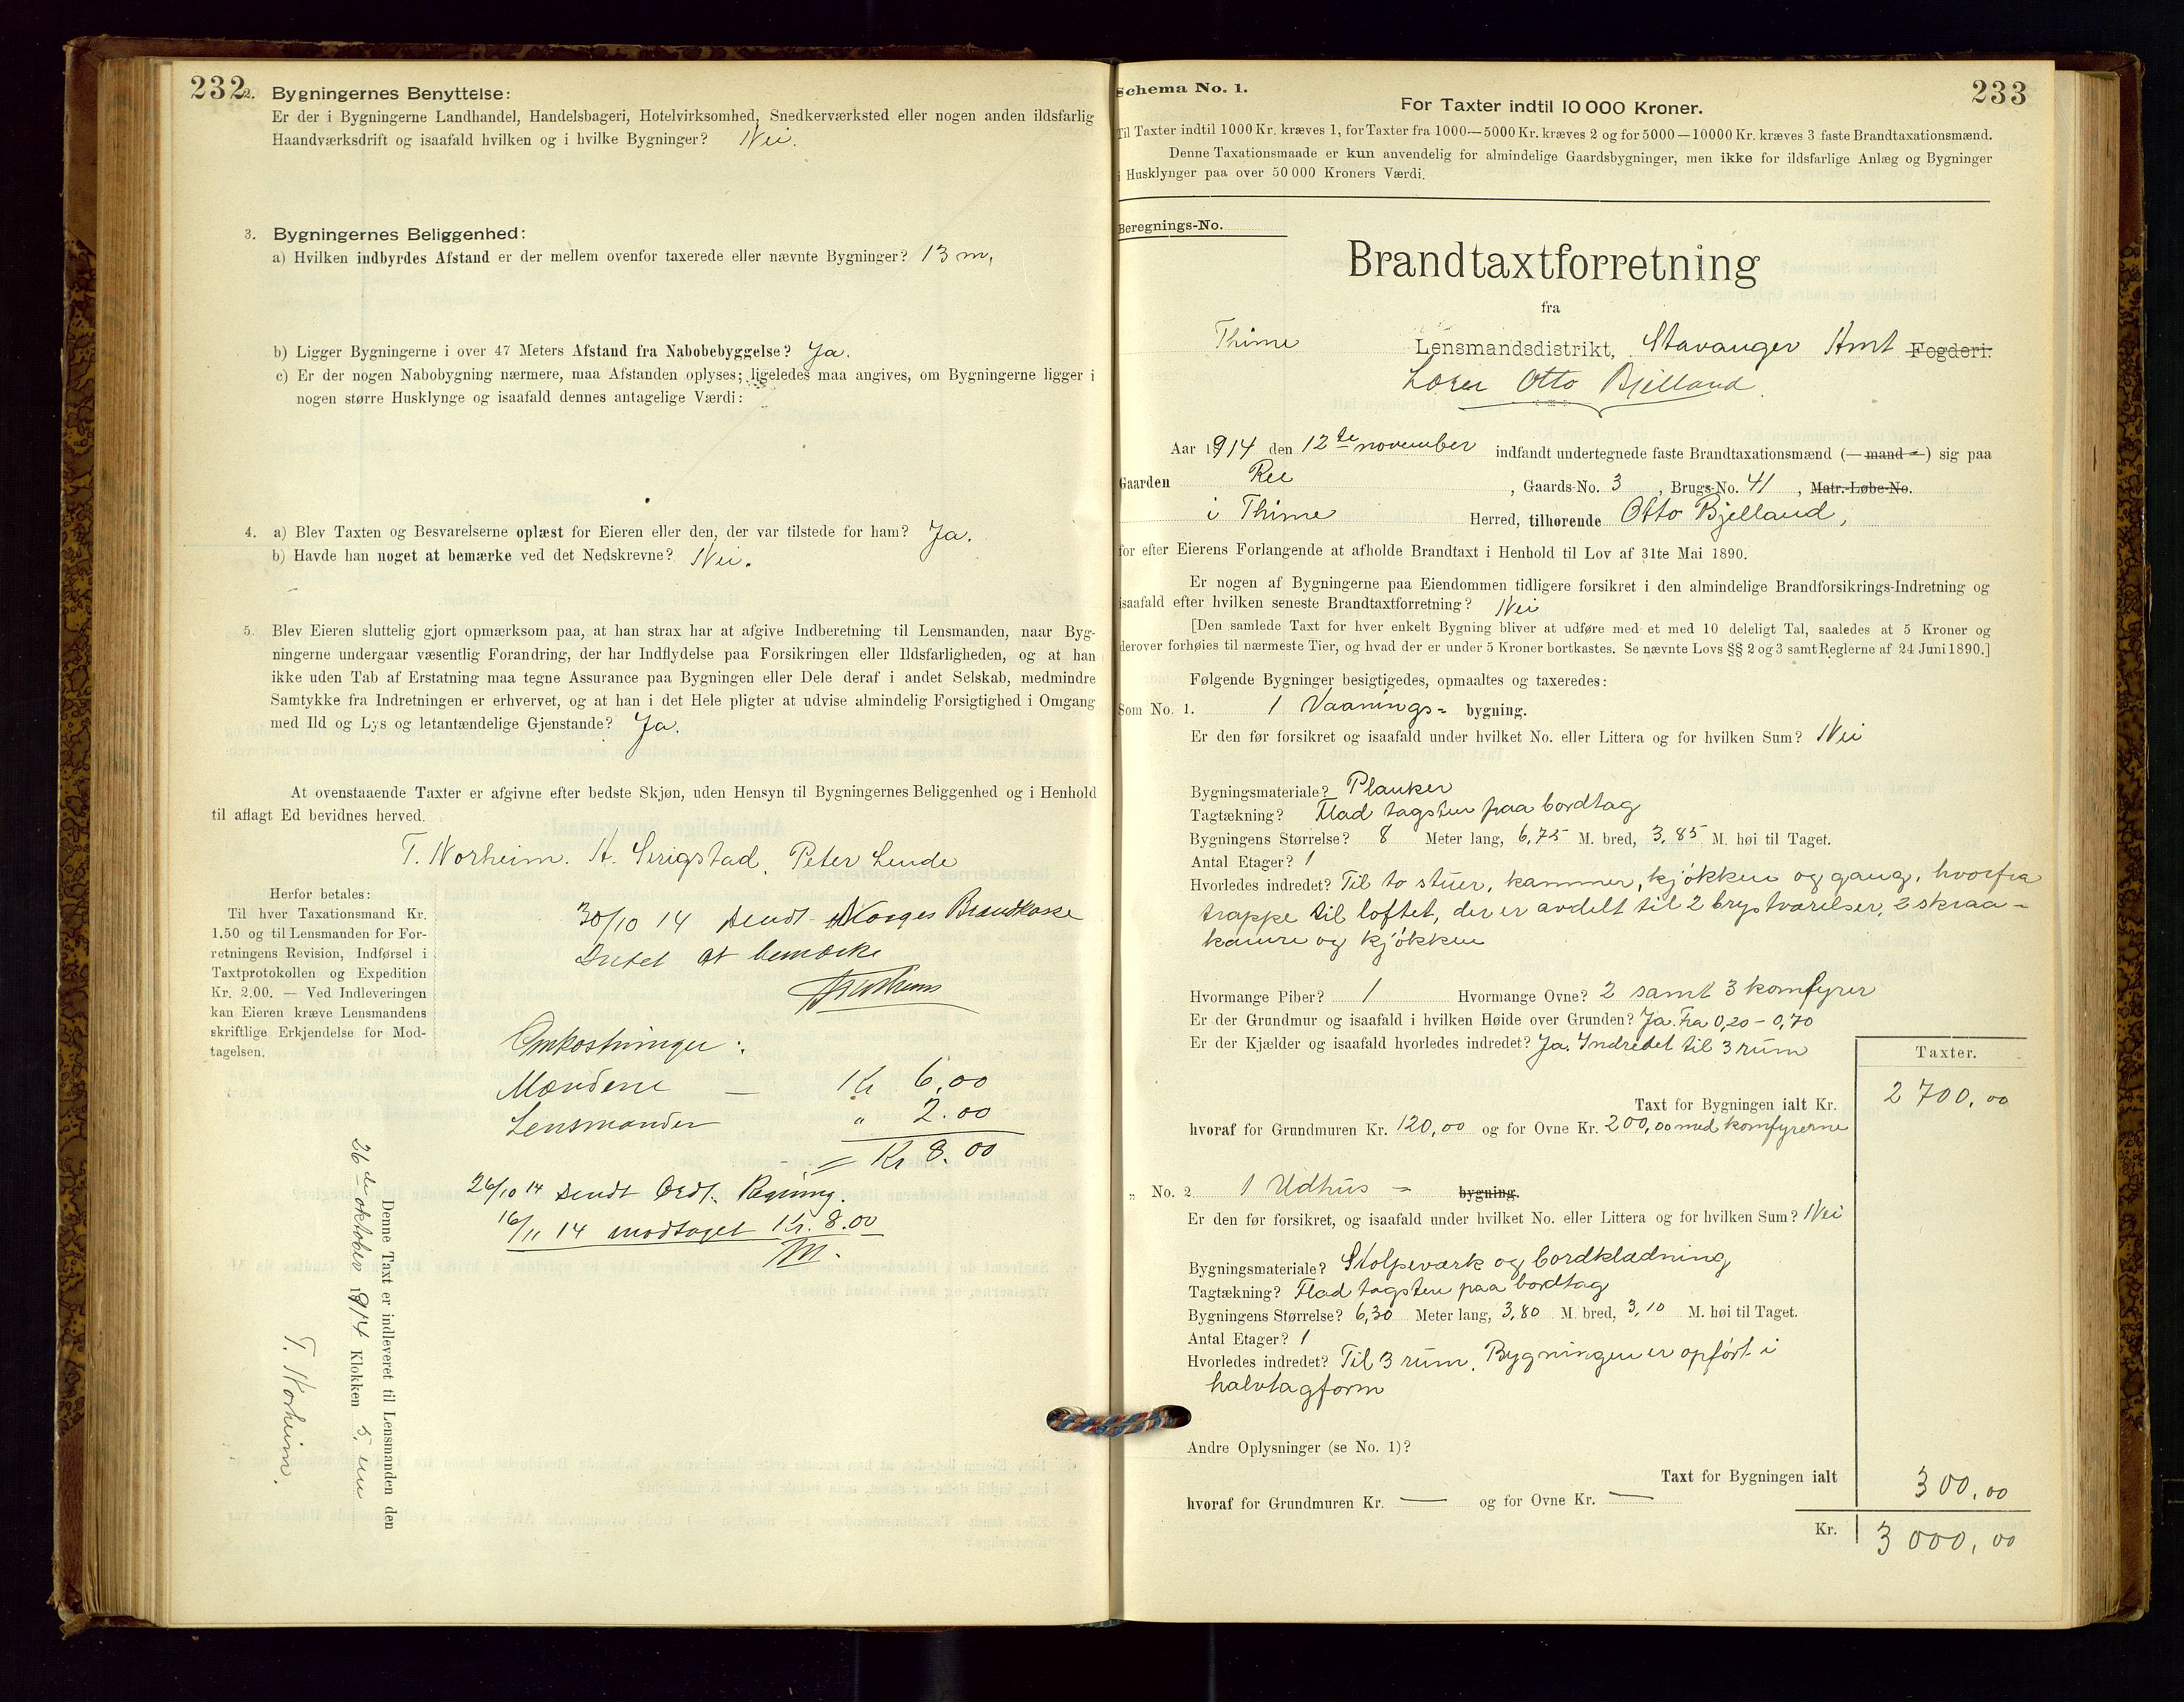 232
2. Bygningernes Benyttelse:
Er der i Bygningerne Landhandel, Handelsbageri, Hotelvirksomhed, Snedkerværksted eller nogen anden ildsfarlig
Haandværksdrift og isaafald hvilken og i hvilke Bygninger? Nei.
3. Bygningernes Beliggenhed:
a) Hvilken indbyrdes Afstand er der mellem ovenfor taxerede eller nævnte Bygninger? 13 m,
b) Ligger Bygningerne i over 47 Meters Afstand fra Nabobebyggelse? Ja.
c) Er der nogen Nabobygning nærmere, maa Afstanden oplyses; ligeledes maa angives, om Bygningerne ligger i
nogen større Husklynge og isaafald dennes antagelige Værdi:
4. a) Blev Taxten og Besvarelserne oplæst for Eieren eller den, der var tilstede for ham? Ja.
b) Havde han noget at bemærke ved det Nedskrevne? Nei.
5. Blev Eieren sluttelig gjort opmærksom paa, at han strax har at afgive Indberetning til Lensmanden, naar Byg-
ningerne undergaar væsentlig Forandring, der har Indflydelse paa Forsikringen eller Ildsfarligheden, og at han
ikke uden Tab af Erstatning maa tegne Assurance paa Bygningen eller Dele deraf i andet Selskab, medmindre
Samtykke fra Indretningen er erhvervet, og at han i det Hele pligter at udvise almindelig Forsigtighed i Omgang
med Ild og Lys og letantændelige Gjenstande? Ja.
At ovenstaaende Taxter er afgivne efter bedste Skjøn, uden Hensyn til Bygningernes Beliggenhed og i Henhold
til aflagt Ed bevidnes herved.
T. Norheim. A. Serigstad. Peter Lende
Herfor betales:
Til hver Taxationsmand Kr.
1.50 og til Lensmanden for For-
retningens Revision, Indførsel i
Taxtprotokollen og Expedition
Kr. 2.00. — Ved Indleveringen
kan Eieren kræve Lensmandens
skriftlige Erkjendelse for Mod-
tagelsen.
30/10 14 sendt Norges Brandkasse
Intet at bemærke
Omkostninger:
Mændene — Kr 6,00
Lensmanden " 2.00
= Kr 8.00
26/10 14 sendt Regning.
16/11 14 modtaget Kr. 8.00
Denne Taxt er indleveret til Lensmanden den
26de oktober 1914 Klokken 5
T. Norheim.
233
Schema No. 1.
For Taxter indtil 10 000 Kroner.
Til Taxter indtil 1000 Kr. kræves 1, for Taxter fra 1000—5000 Kr. kræves 2 og for 5000—10000 Kr. kræves 3 faste Brandtaxationsmænd.
Denne Taxationsmaade er kun anvendelig for almindelige Gaardsbygninger, men ikke for ildsfarlige Anlæg og Bygninger
i Husklynger paa over 50 000 Kroners Værdi.
Beregnings-No.
Brandtaxtforretning
fra
Thime Lensmandsdistrikt, Stavanger Amt Fogderi.
Otto Bjelland.
Aar 1914 den 12te november indfandt undertegnede faste Brandtaxationsmænd (—mand—) sig paa
Gaarden Ree, Gaards-No. 3, Brugs-No. 41, Matr.-Løbe-No.
i Thime Herred, tilhørende Otto Bjelland,
for efter Eierens Forlangende at afholde Brandtaxt i Henhold til Lov af 31te Mai 1890.
Er nogen af Bygningerne paa Eiendommen tidligere forsikret i den almindelige Brandforsikrings-Indretning og
isaafald efter hvilken seneste Brandtaxtforretning? Nei
[Den samlede Taxt for hver enkelt Bygning bliver at udføre med et med 10 deleligt Tal, saaledes at 5 Kroner og
derover forhøies til nærmeste Tier, og hvad der er under 5 Kroner bortkastes. Se nævnte Lovs §§ 2 og 3 samt Reglerne af 24 Juni 1890.]
Følgende Bygninger besigtigedes, opmaaltes og taxeredes:
Som No. 1. 1 Vaanings= bygning.
Er den før forsikret og isaafald under hvilket No. eller Littera og for hvilken Sum? Nei
Bygningsmateriale? Planker
Tagtækning? Flad tagsten paa bordtag
Bygningens Størrelse? 8 Meter lang, 6,75 M. bred, 3,85 M. høi til Taget.
Antal Etager? 1
Hvorledes indredet? Til to stuer, kammer, kjøkken og gang, hvorfra
trappe til loftet, der er avdelt til 2 brystværelser, 2 skraa-
kamre og kjøkken
Hvormange Piber? 1 Hvormange Ovne? 2 samt 3 komfyrer
Er der Grundmur og isaafald i hvilken Høide over Grunden? Ja. Fra 0,20 – 0,70
Er der Kjælder og isaafald hvorledes indredet? Ja. Indredet til 3 rum
Taxter.
Taxt for Bygningen ialt Kr. 2 700,00
hvoraf for Grundmuren Kr. 120,00 og for Ovne Kr. 200,00 med komfyrerne
" No. 2 1 Udhus = bygning.
Er den før forsikret, og isaafald under hvilket No. eller Littera og for hvilken Sum? Nei
Bygningsmateriale? Stolpeværk og bordklædning
Tagtækning? Flad tagsten paa bordtag
Bygningens Størrelse? 6,30 Meter lang, 3,80 M. bred, 3,10 M. høi til Taget.
Antal Etager? 1
Hvorledes indredet? Til 3 rum. Bygningen er opført i
halvtagform
Andre Oplysninger (se No. 1)?
Taxt for Bygningen ialt 300,00
hvoraf for Grundmuren Kr. — og for Ovne Kr. —
Kr. 3 000,00